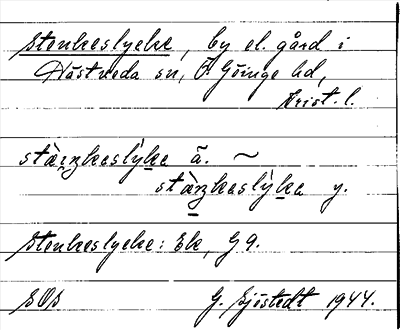 Stenkeslycke, by el. gård i
Västveda sn, Ö. Göinge hd,
Krist. l.
stàrŋkeslỳke ä. ~
stàrŋkeslỳke y.
Stenkeslycke: Ek, G 9.
SOS G. Sjöstedt 1944.